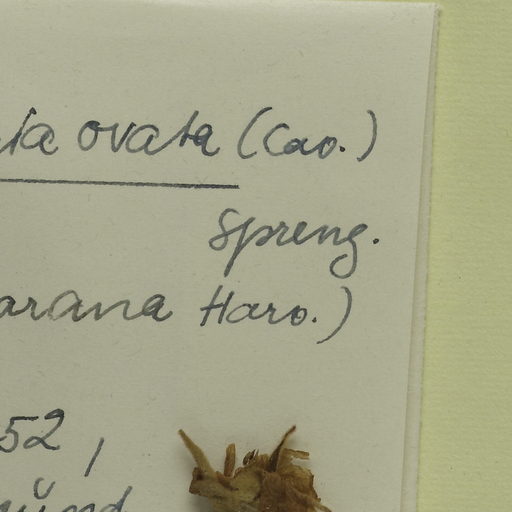 ia ovata (Cav.)
Spreng.
arana Harv.)
52,
münd